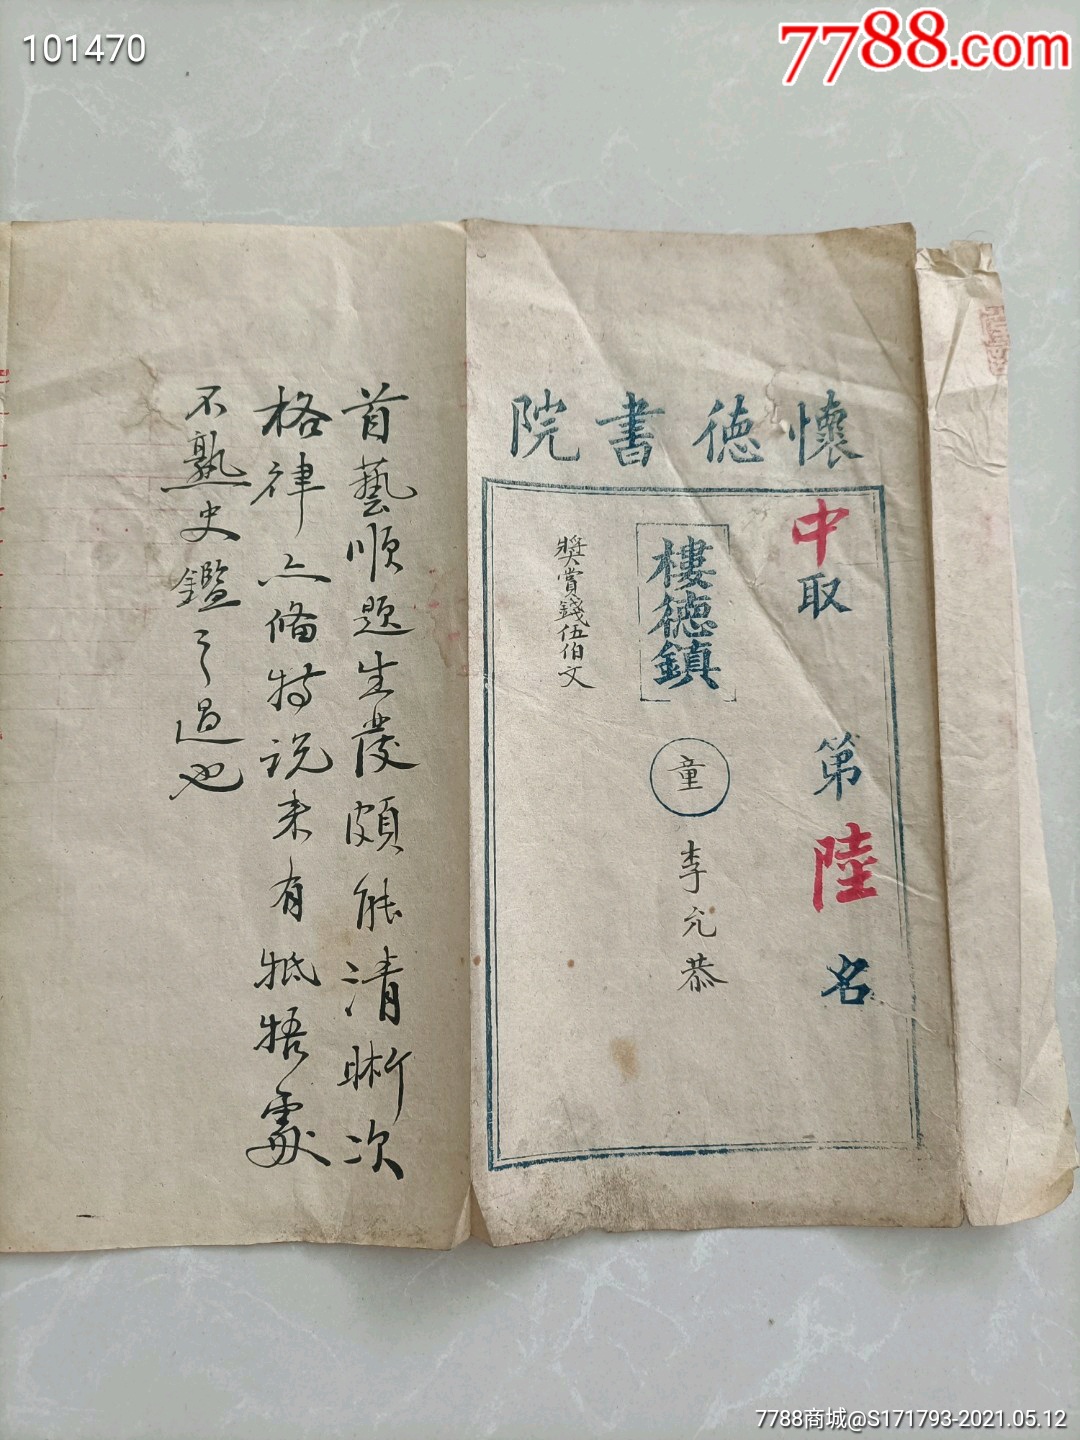 101470
7788.com
懷德書院
中取 第陸名
樓德鎮
童 李允恭
獎賞錢伍伯文
首藝順題生發頗能清晰次
格律亦備特说来有牴牾處
不熟史鑑之過也
7788商城@S171793-2021.05.12